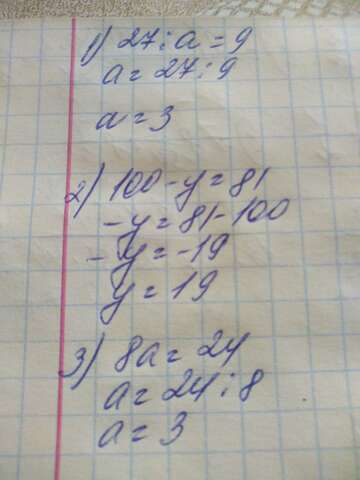 1) 27:a=9
a=27:9
a=3
2) 100-y=81
-y=81-100
-y=-19
y=19
3) 8a=24
a=24:8
a=3